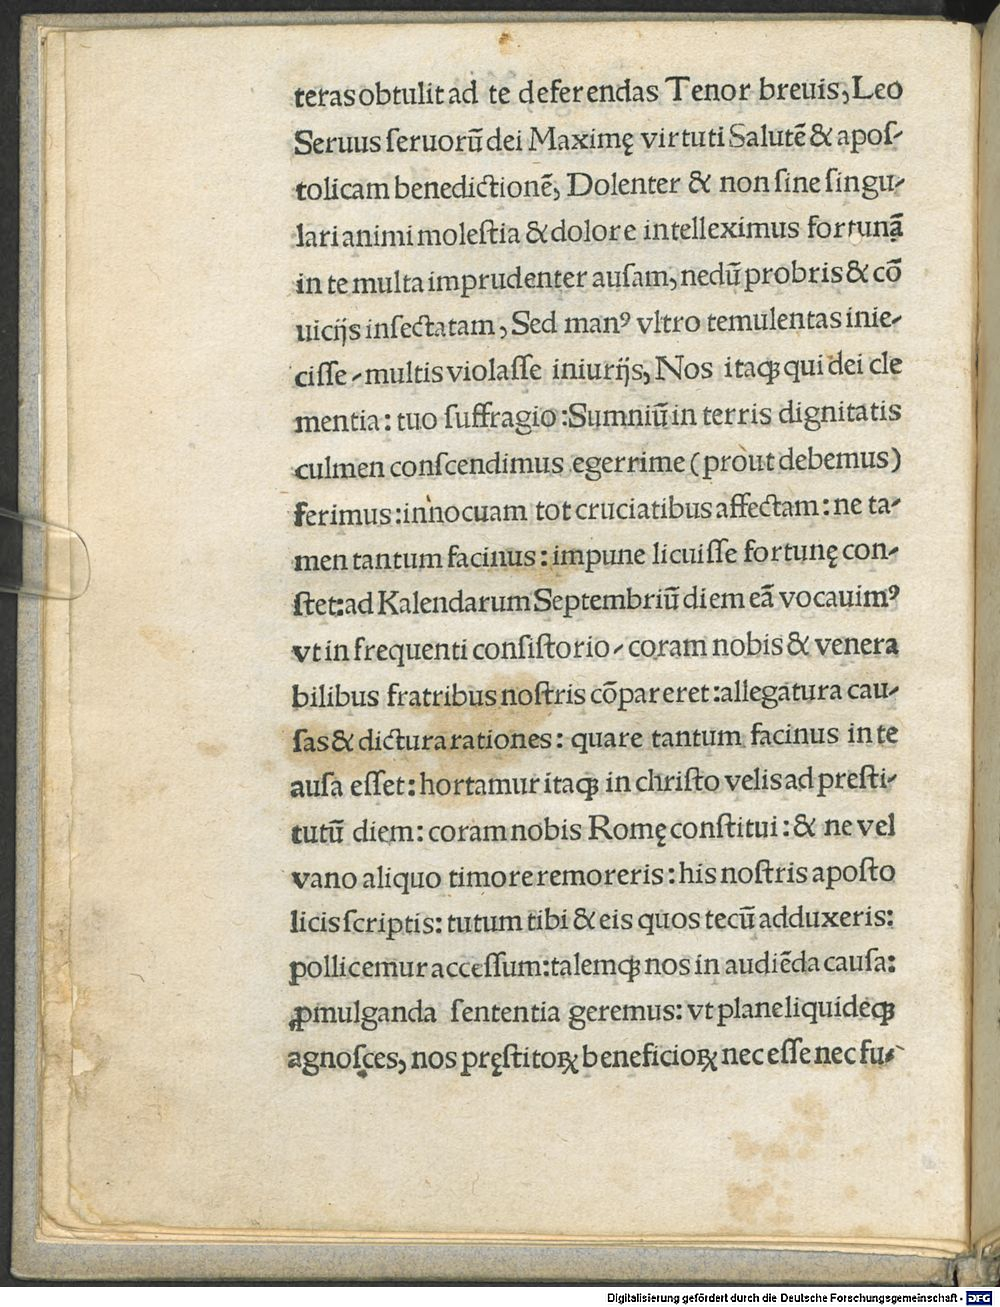 teras obtulit ad te deferendas Tenor breuis, Leo
Seruus ſeruorū dei Maximę virtuti Salutē & apoſ-
tolicam benedictionē, Dolenter & non ſine ſingu-
lari animi moleſtia & dolore intelleximus fortunā
in te multa imprudenter auſam, nedū probris & cō
uicijs inſectatam, Sed manꝰ vltro temulentas inie-
ciſſe - multis violaſſe iniurijs, Nos itaqꝫ qui dei cle
mentia: tuo ſuffragio: Sumniū in terris dignitatis
culmen conſcendimus egerrime (prout debemus)
ferimus: innocuam tot cruciatibus affectam: ne ta-
men tantum facinus: impune licuiſſe fortunę con-
ſtet: ad Kalendarum Septembriū diem eā vocauimꝰ
vt in frequenti conſiſtorio - coram nobis & venera
bilibus fratribus noſtris cōpareret: allegatura cau-
ſas & dictura rationes: quare tantum facinus in te
auſa eſſet: hortamur itaqꝫ in chriſto velis ad preſti-
tutū diem: coram nobis Romę conſtitui: & ne vel
vano aliquo timore remoreris: his noſtris apoſto
licis ſcriptis: tutum tibi & eis quos tecū adduxeris:
pollicemur acceſſum: talemqꝫ nos in audiēda cauſa:
ꝓmulganda ſententia geremus: vt plane liquideqꝫ
agnoſces, nos pręſtitoꝝ beneficioꝝ nec eſſe nec fu-
Digitalisierung gefördert durch die Deutsche Forschungsgemeinschaft - DFG